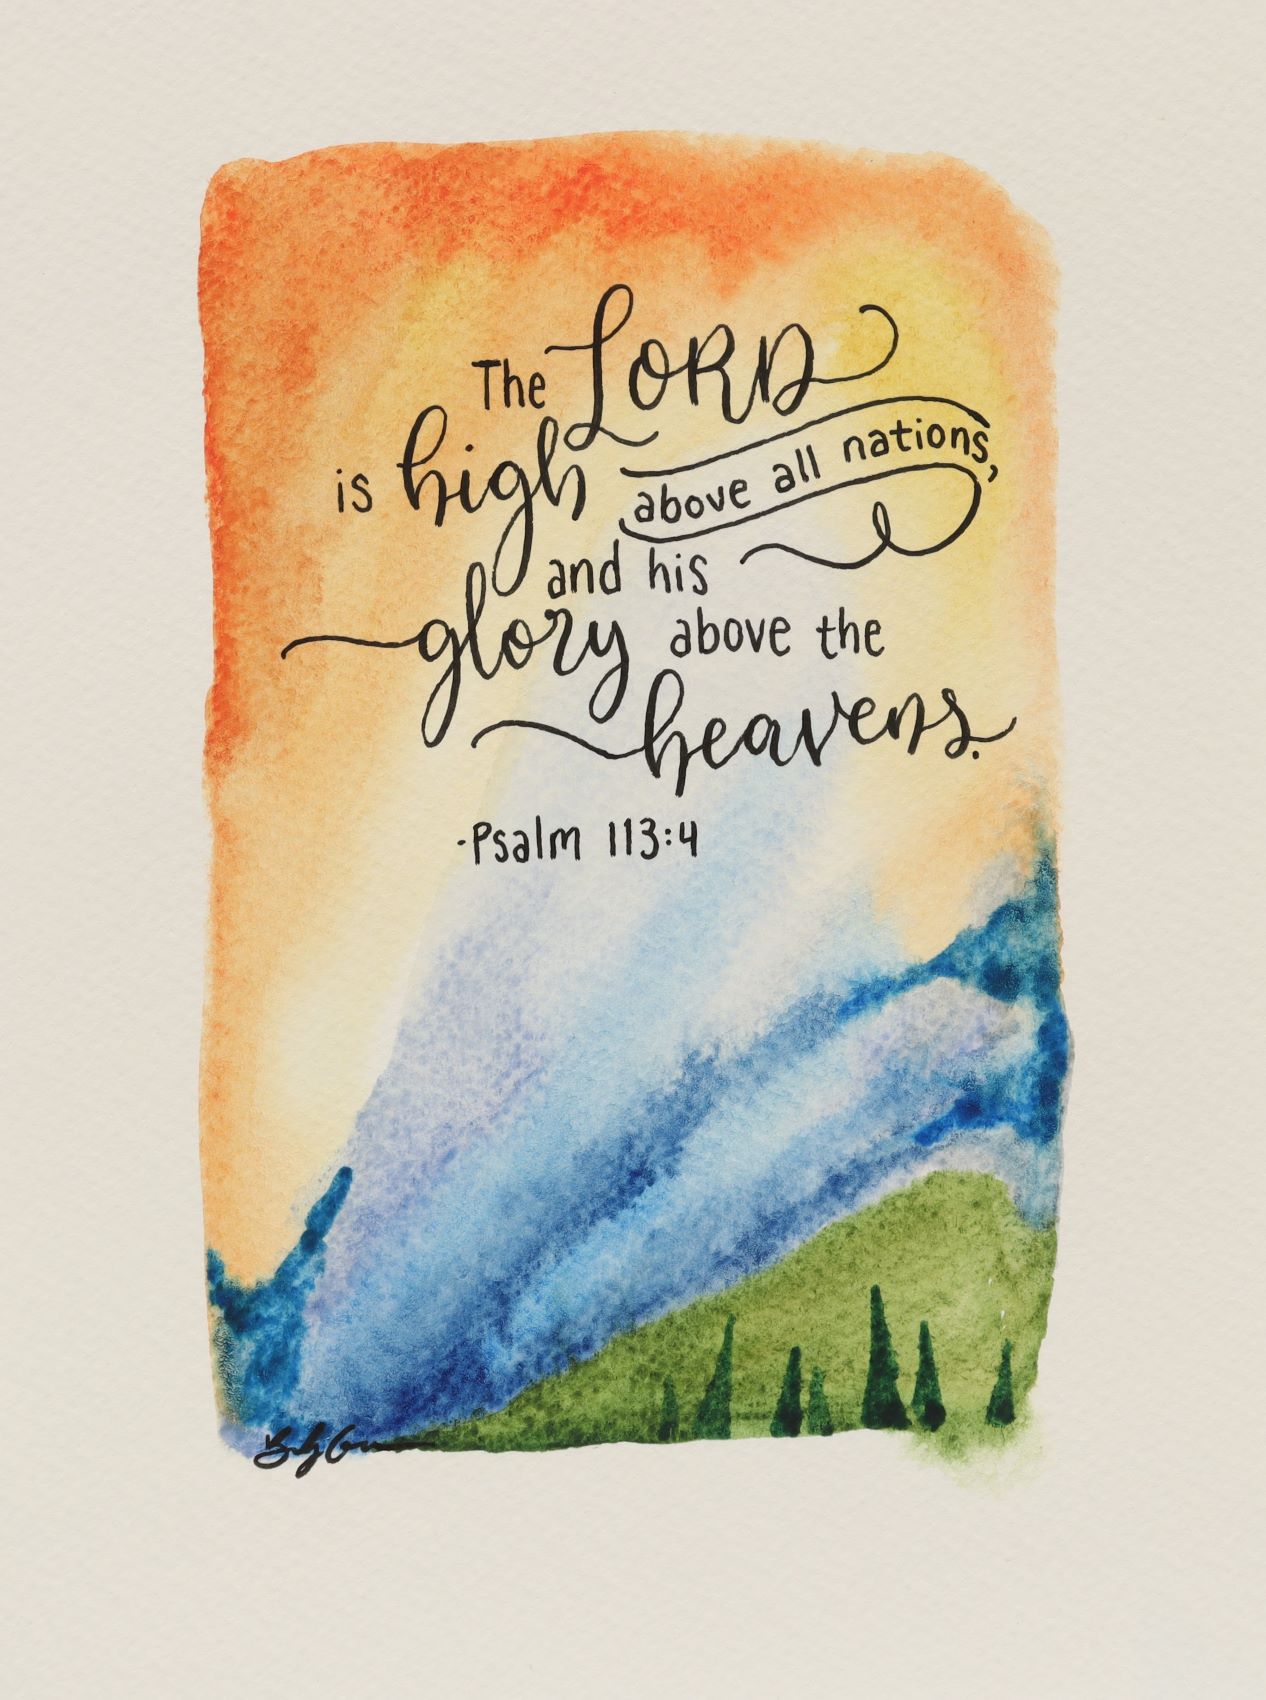 The LORD
is high above all nations,
and his
glory above the
heavens.
-Psalm 113:4